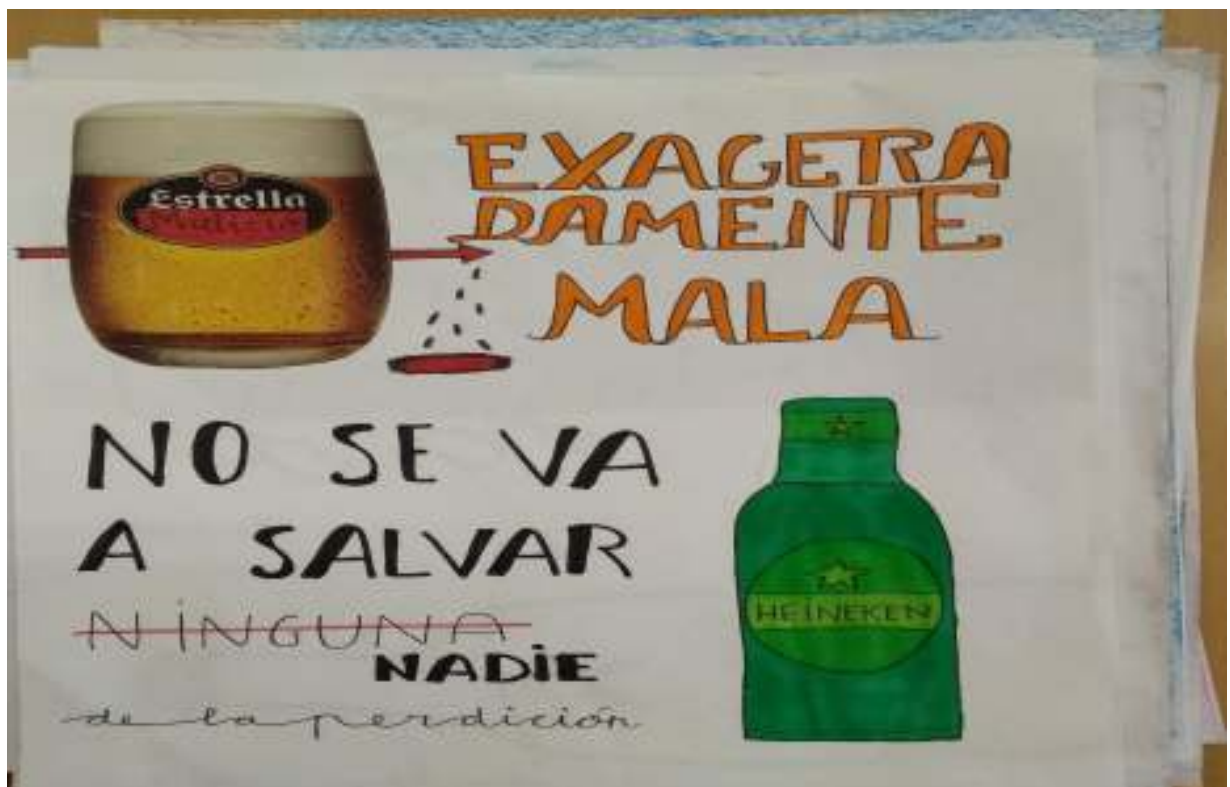 Estrella
EXAGERA
DAMENTE
MALA
NO SE VA
A SALVAR
NINGUNA
NADiE
de la perdición
HEINEKEN